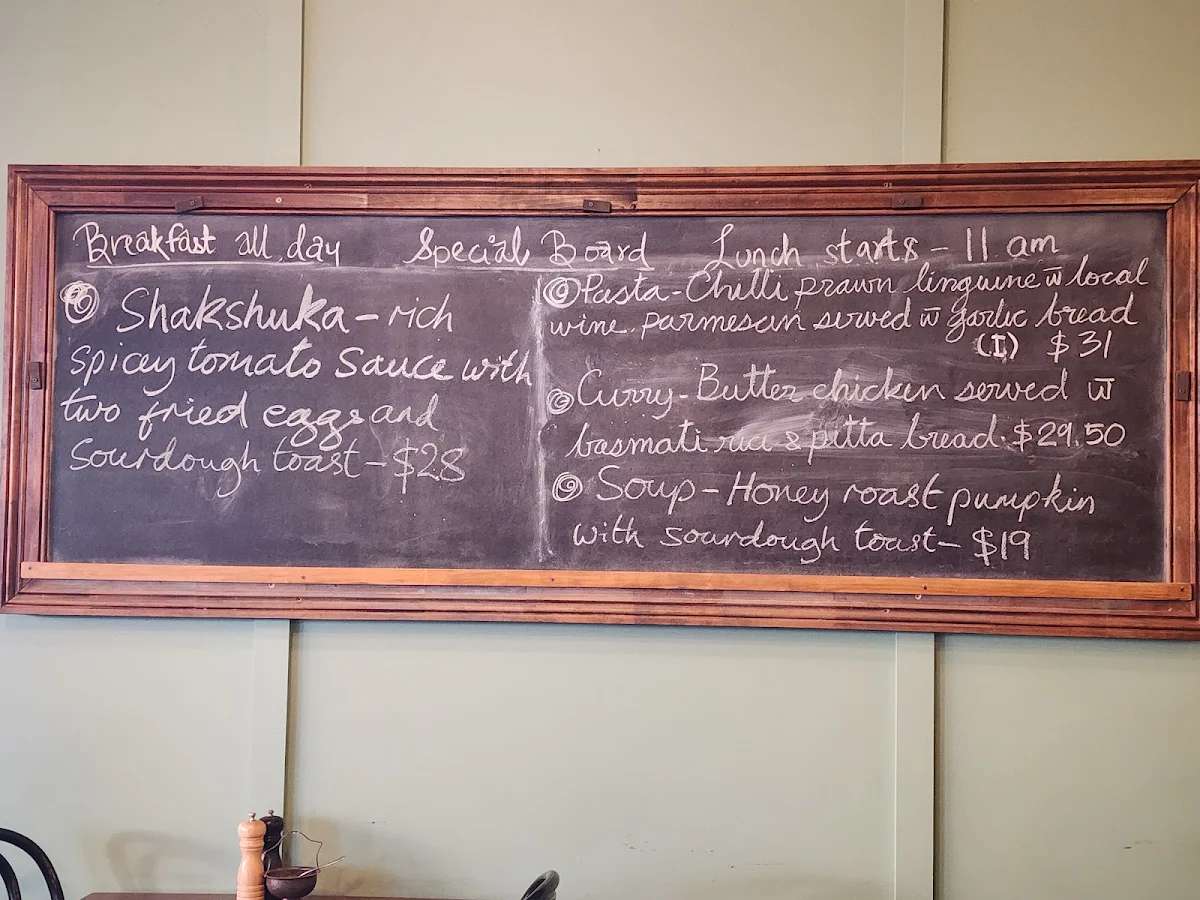 Breakfast all day Special Board Lunch starts - 11 am
Shakshuka - rich
spicey tomato sauce with
two fried eggs and
Sourdough toast - $28
Pasta - Chilli prawn linguine w̅ local
wine. parmesan served w̅ garlic bread
(I) $31
Curry - Butter chicken served w̅
basmati rice & pitta bread. $29.50
Soup - Honey roast pumpkin
with sourdough toast - $19